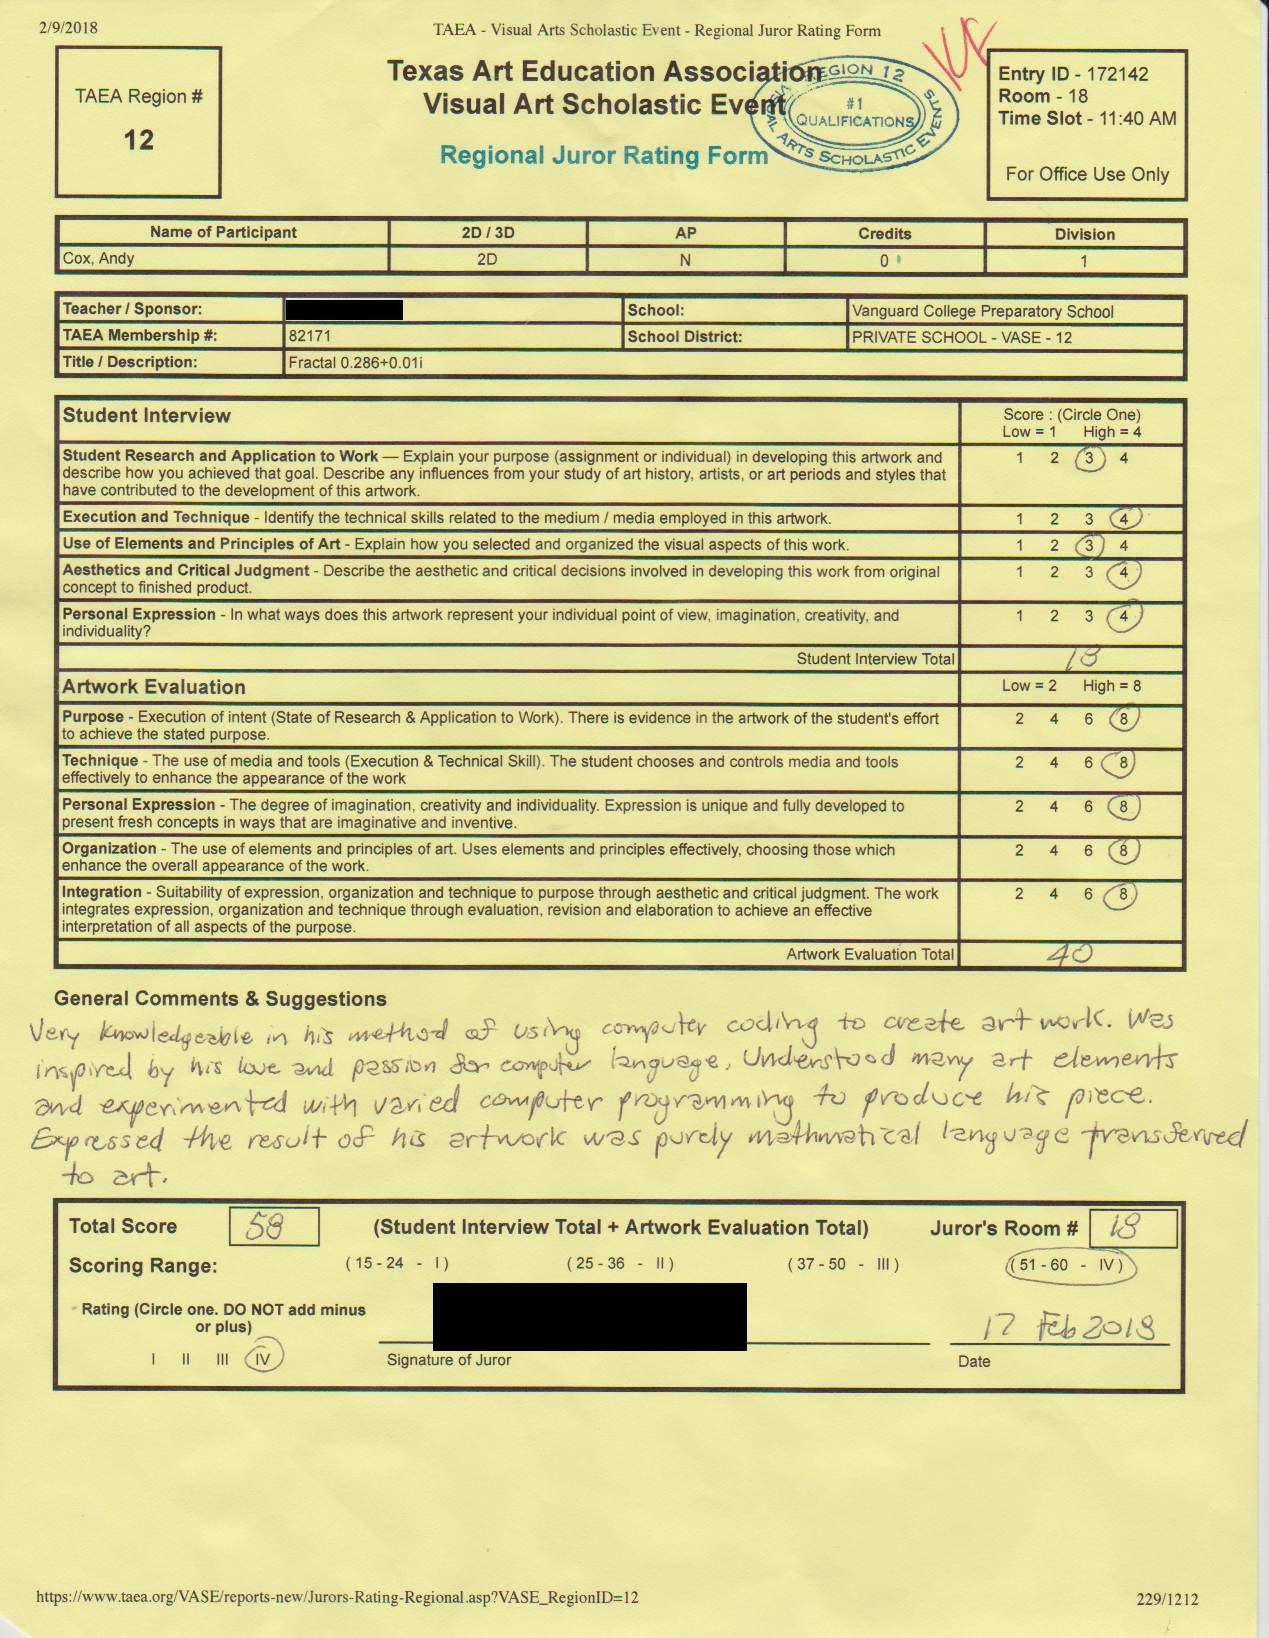 2/9/2018 TAEA - Visual Arts Scholastic Event - Regional Juror Rating Form
TAEA Region #
12
Texas Art Education Association
Visual Art Scholastic Event
Regional Juror Rating Form
REGION 12
#1
QUALIFICATIONS
VISUAL ARTS SCHOLASTIC EVENTS
Entry ID - 172142
Room - 18
Time Slot - 11:40 AM
For Office Use Only
Name of Participant 2D / 3D AP Credits Division
Cox, Andy 2D N 0 1
Teacher / Sponsor: School: Vanguard College Preparatory School
TAEA Membership #: 82171 School District: PRIVATE SCHOOL - VASE - 12
Title / Description: Fractal 0.286+0.01i
Student Interview Score : (Circle One)
Low = 1 High = 4
Student Research and Application to Work — Explain your purpose (assignment or individual) in developing this artwork and 1 2 3 4
describe how you achieved that goal. Describe any influences from your study of art history, artists, or art periods and styles that
have contributed to the development of this artwork.
Execution and Technique - Identify the technical skills related to the medium / media employed in this artwork. 1 2 3 4
Use of Elements and Principles of Art - Explain how you selected and organized the visual aspects of this work. 1 2 3 4
Aesthetics and Critical Judgment - Describe the aesthetic and critical decisions involved in developing this work from original 1 2 3 4
concept to finished product.
Personal Expression - In what ways does this artwork represent your individual point of view, imagination, creativity, and 1 2 3 4
individuality?
Student Interview Total 18
Artwork Evaluation Low = 2 High = 8
Purpose - Execution of intent (State of Research & Application to Work). There is evidence in the artwork of the student's effort 2 4 6 8
to achieve the stated purpose.
Technique - The use of media and tools (Execution & Technical Skill). The student chooses and controls media and tools 2 4 6 8
effectively to enhance the appearance of the work
Personal Expression - The degree of imagination, creativity and individuality. Expression is unique and fully developed to 2 4 6 8
present fresh concepts in ways that are imaginative and inventive.
Organization - The use of elements and principles of art. Uses elements and principles effectively, choosing those which 2 4 6 8
enhance the overall appearance of the work.
Integration - Suitability of expression, organization and technique to purpose through aesthetic and critical judgment. The work 2 4 6 8
integrates expression, organization and technique through evaluation, revision and elaboration to achieve an effective
interpretation of all aspects of the purpose.
Artwork Evaluation Total 40
General Comments & Suggestions
Very knowledgeable in his method of using computer coding to create art work. Was
inspired by his love and passion for computer language, Understood many art elements
and experimented with varied computer programming to produce his piece.
Expressed the result of his artwork was purely mathmatical language transferred
to art.
Total Score 58 (Student Interview Total + Artwork Evaluation Total) Juror's Room # 18
Scoring Range: ( 15 - 24 - I ) ( 25 - 36 - II ) ( 37 - 50 - III ) ( 51 - 60 - IV )
Rating (Circle one. DO NOT add minus
or plus)
17 Feb 2018
I II III IV Signature of Juror Date
https://www.taea.org/VASE/reports-new/Jurors-Rating-Regional.asp?VASE_RegionID=12 229/1212